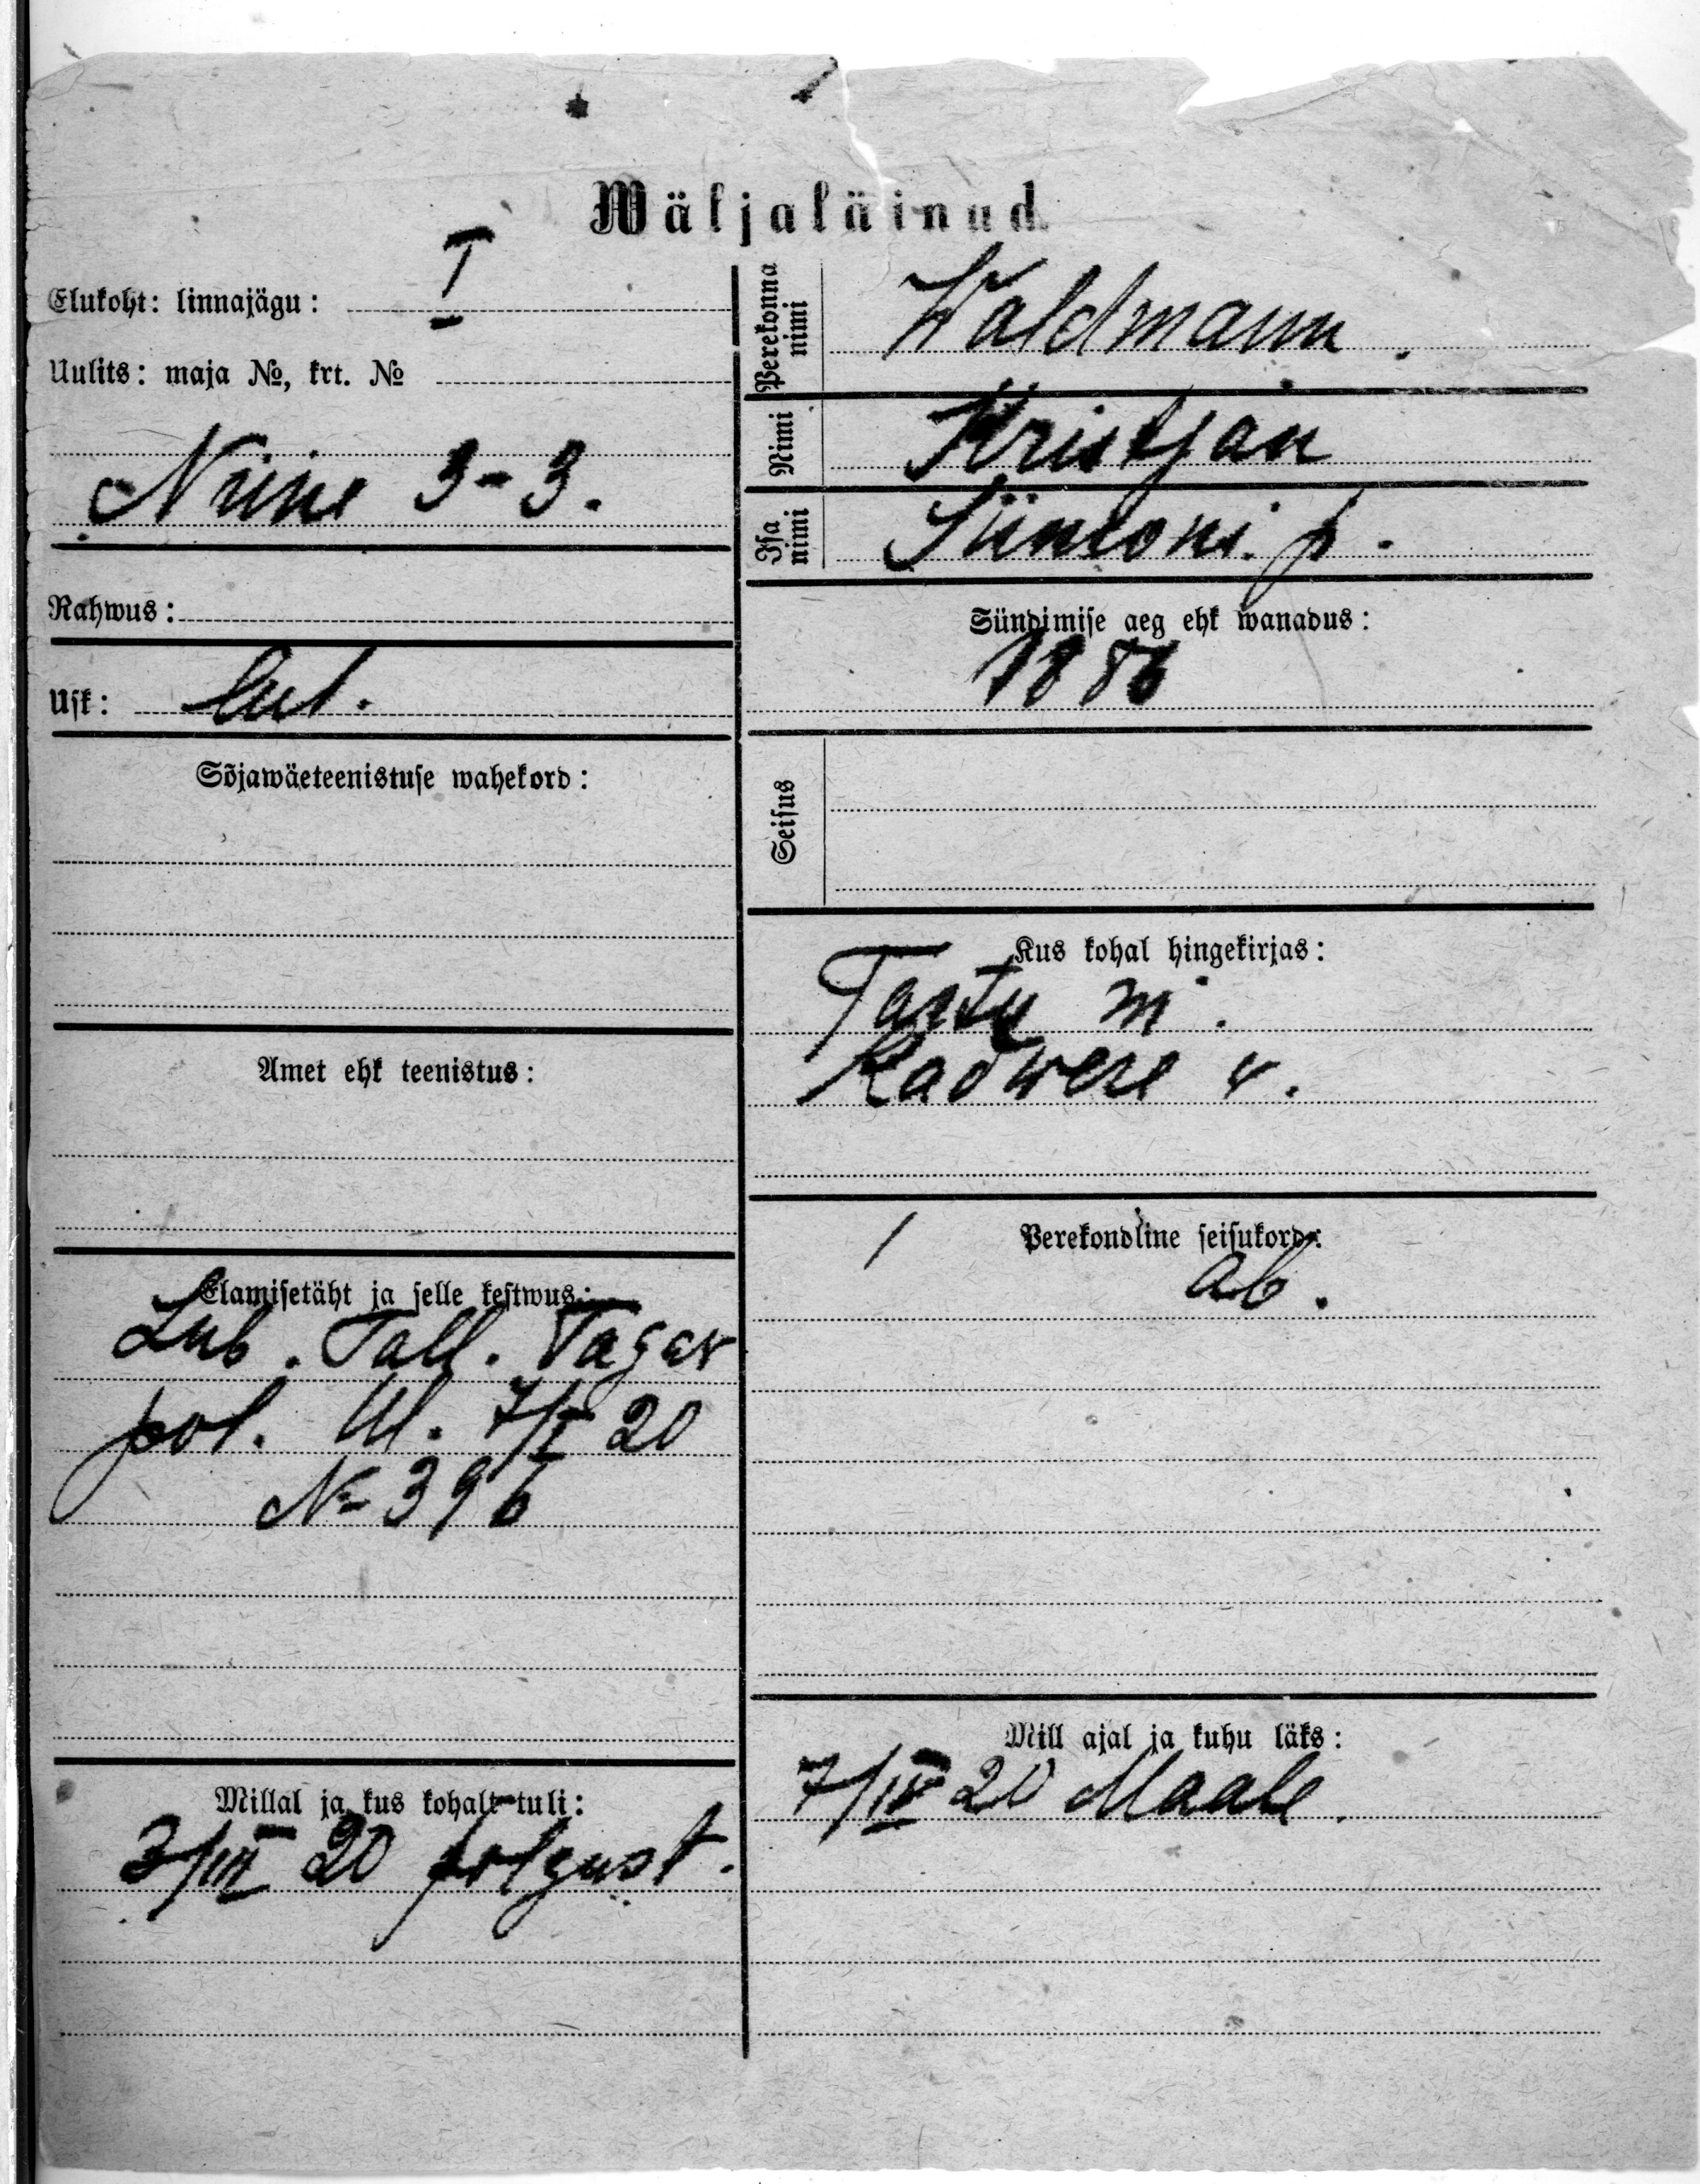 Wäljaläinud.
Elukoht: linnajägu: I
Uulits: maja №, krt. №
Niine 3-3.
Rahwus:
Usk: Lut.
Sõjawäeteenistuse wahekord:
Amet ehk teenistus:
Elamisetäht ja selle kestwus:
Lub. Tall. Tagav
pol. Ül. 7/I 20
№ 396
Millal ja kus kohalt tuli:
3/III 20 polgust.
Perekonna nimi
Waldmann.
Nimi
Kristjan
Isa nimi
Siimoni p.
Sündimise aeg ehk wanadus:
1886
Seisus
Kus kohal hingekirjas:
Tartu m.
Kadwere v.
Perekondline seisukord:
ab.
Mill ajal ja kuhu läks:
7/IV 20 Maale.